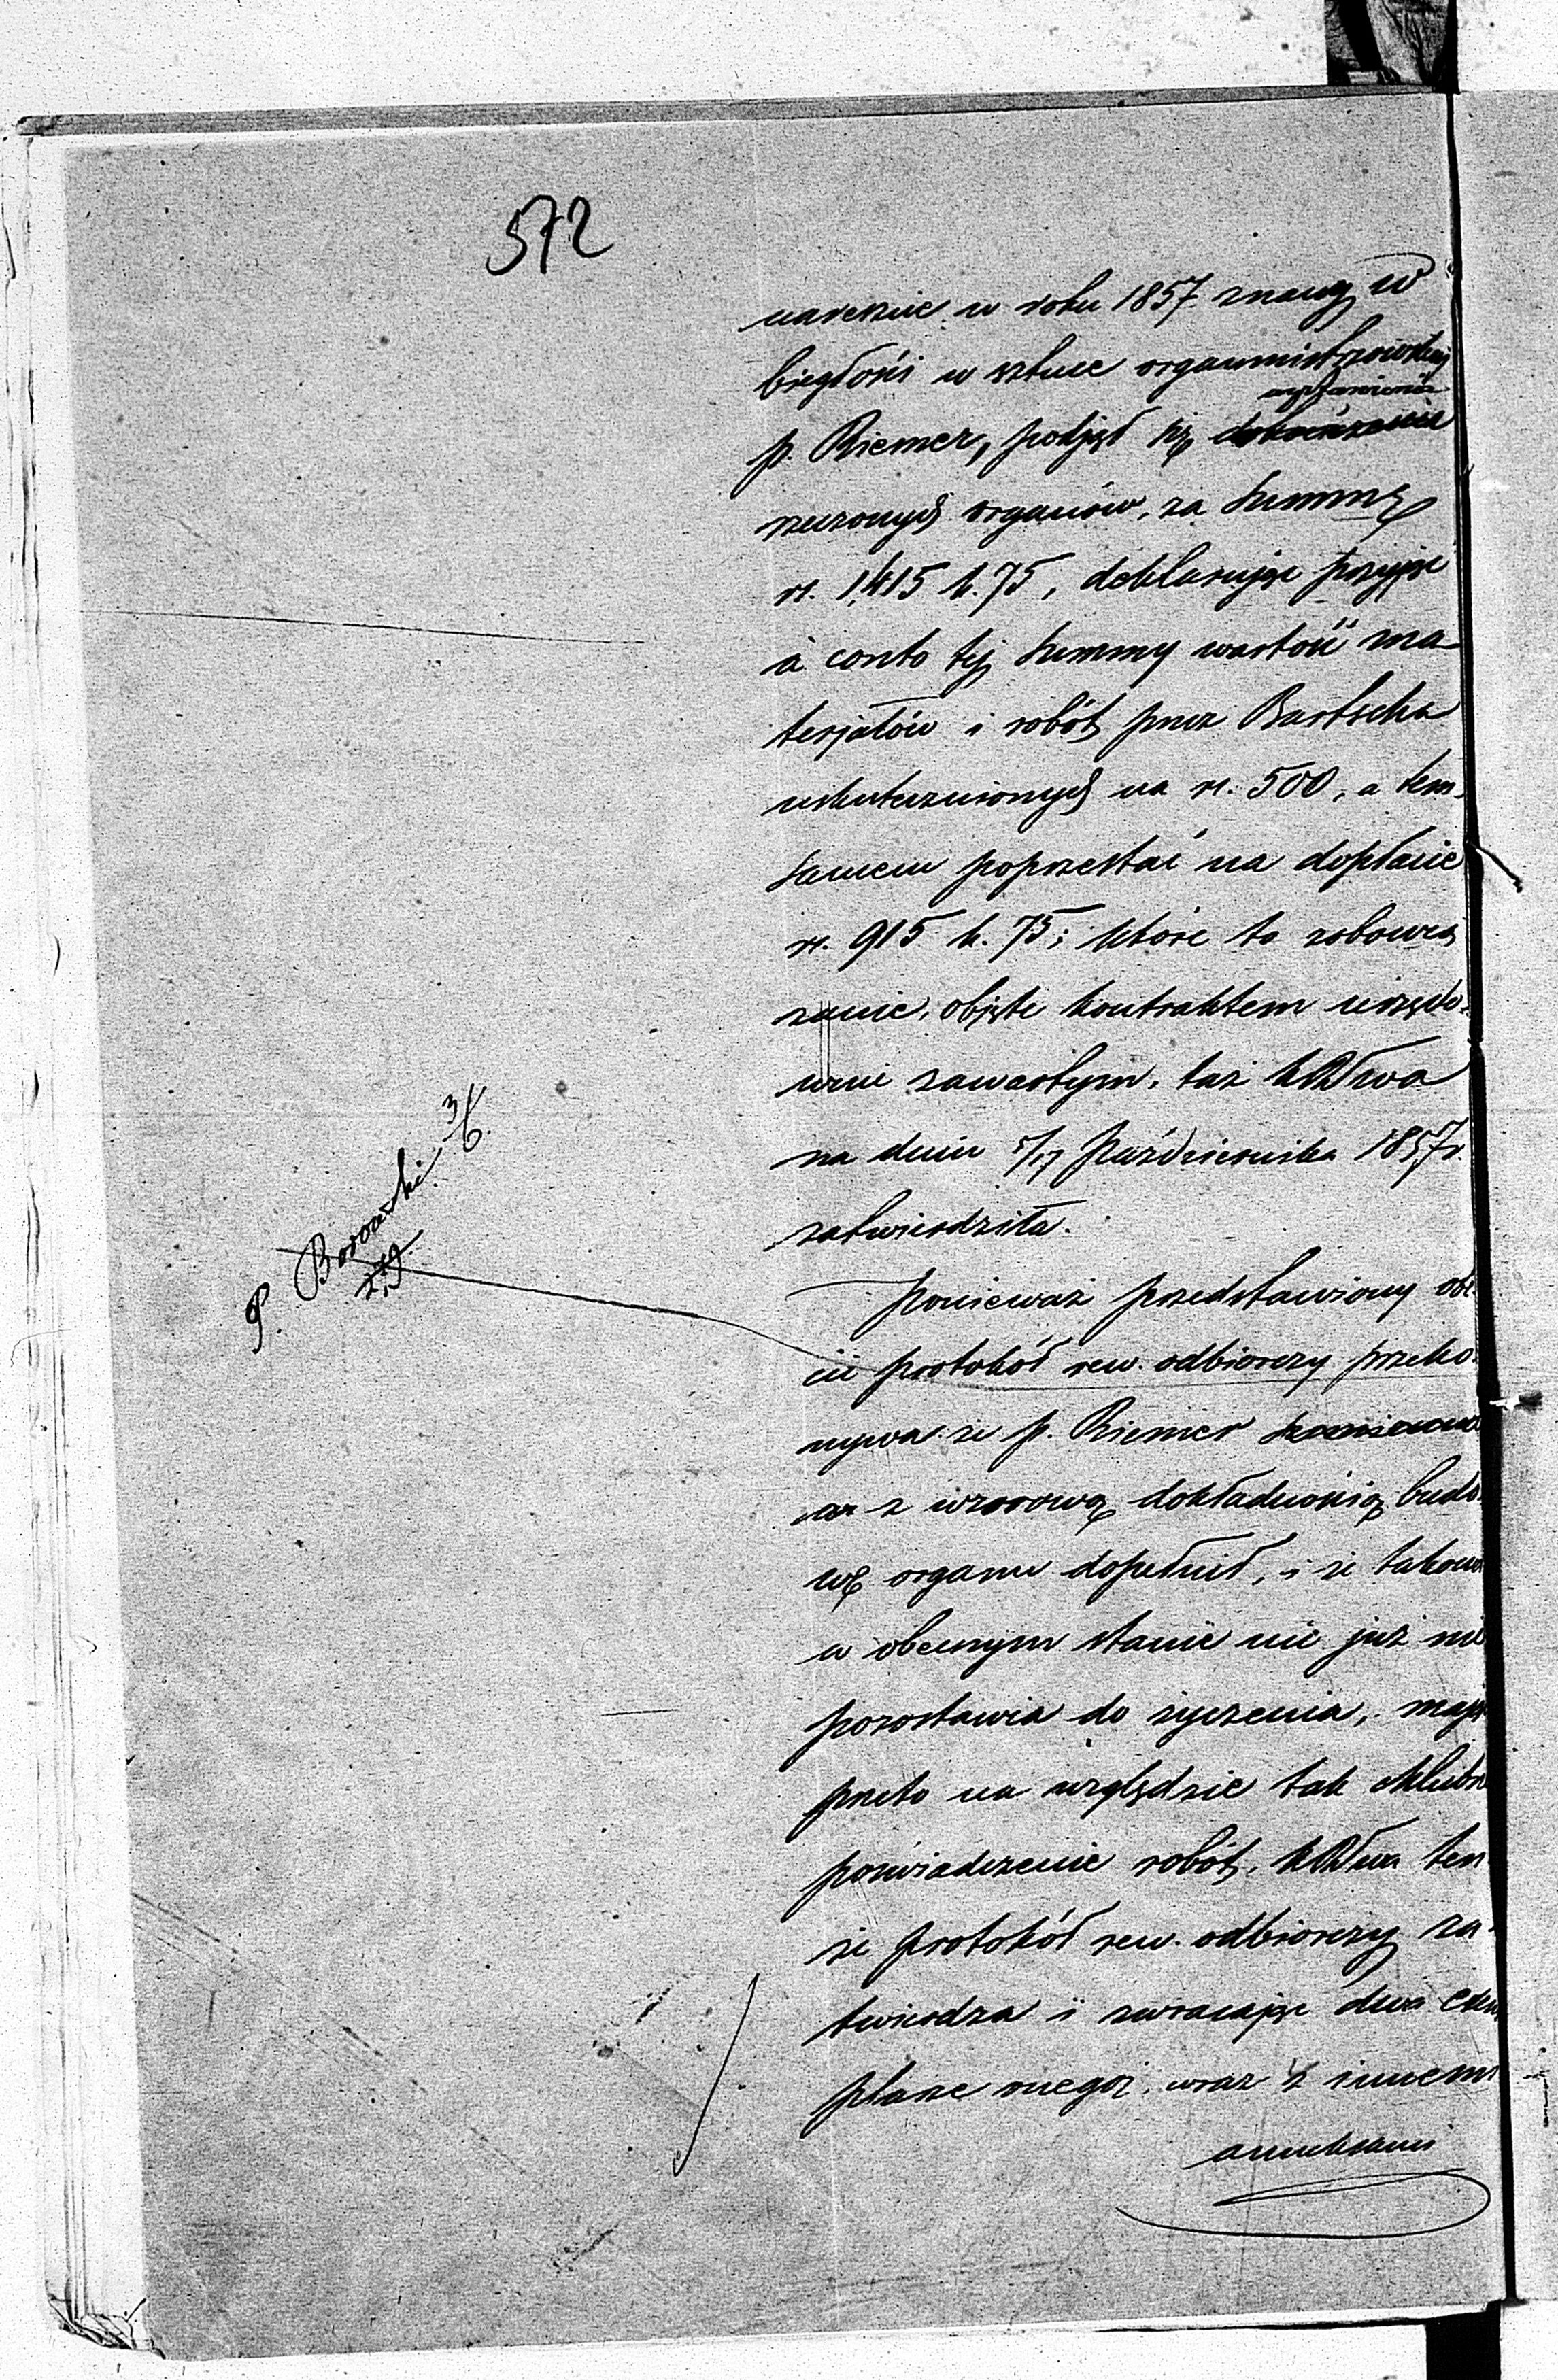 572
nareszcie w roku 1857 znany w
biegłości w sztuce organmistrzowskiej
wystawienia
p. Riemer, podjął się dokończenia
rzeczonych organów, za Summę
rs. 1415 k. 75, deklarując przyjąć
à conto tej Summy wartość ma-
terjałów i robót przez Bartscha
uskutecznionych na rs. 500, a tem
samem poprzestać na dopłacie
rs. 915 k. 75; które to zobowią
zanie, objęte kontraktem urzędo-
wnie zawartym, taż
na dniu 5/17 Października 1857 r.
zatwierdziła.
Ponieważ przedstawiony obe
cie protokół rew. odbiorczy przeko-
nywa że p. Riemer
z wzorową dokładnością budo
wę organu dopełnił, i że takowe
w obecnym stanie nic już nie
pozostawia do życzenia, mając
przeto na względzie tak chlubne
poświadczenie robót, ten
że protokół rew. odbiorczy za-
twierdza i zwracając dwa exem
plarze onegoż, wraz z innemi
annexami
P. Borowski